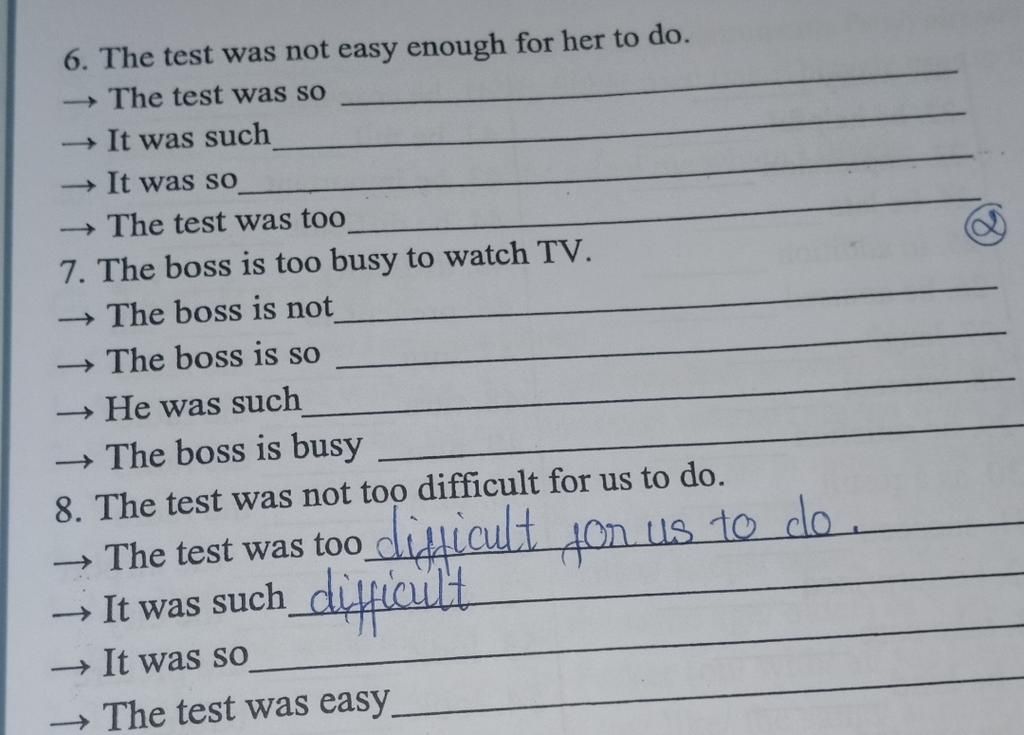 6. The test was not easy enough for her to do.
→ The test was so
→ It was such
→ It was so
→ The test was too
7. The boss is too busy to watch TV.
→ The boss is not
→ The boss is so
→ He was such
→ The boss is busy
8. The test was not too difficult for us to do.
→ The test was too difficult for us to do.
→ It was such difficult
→ It was so
→ The test was easy